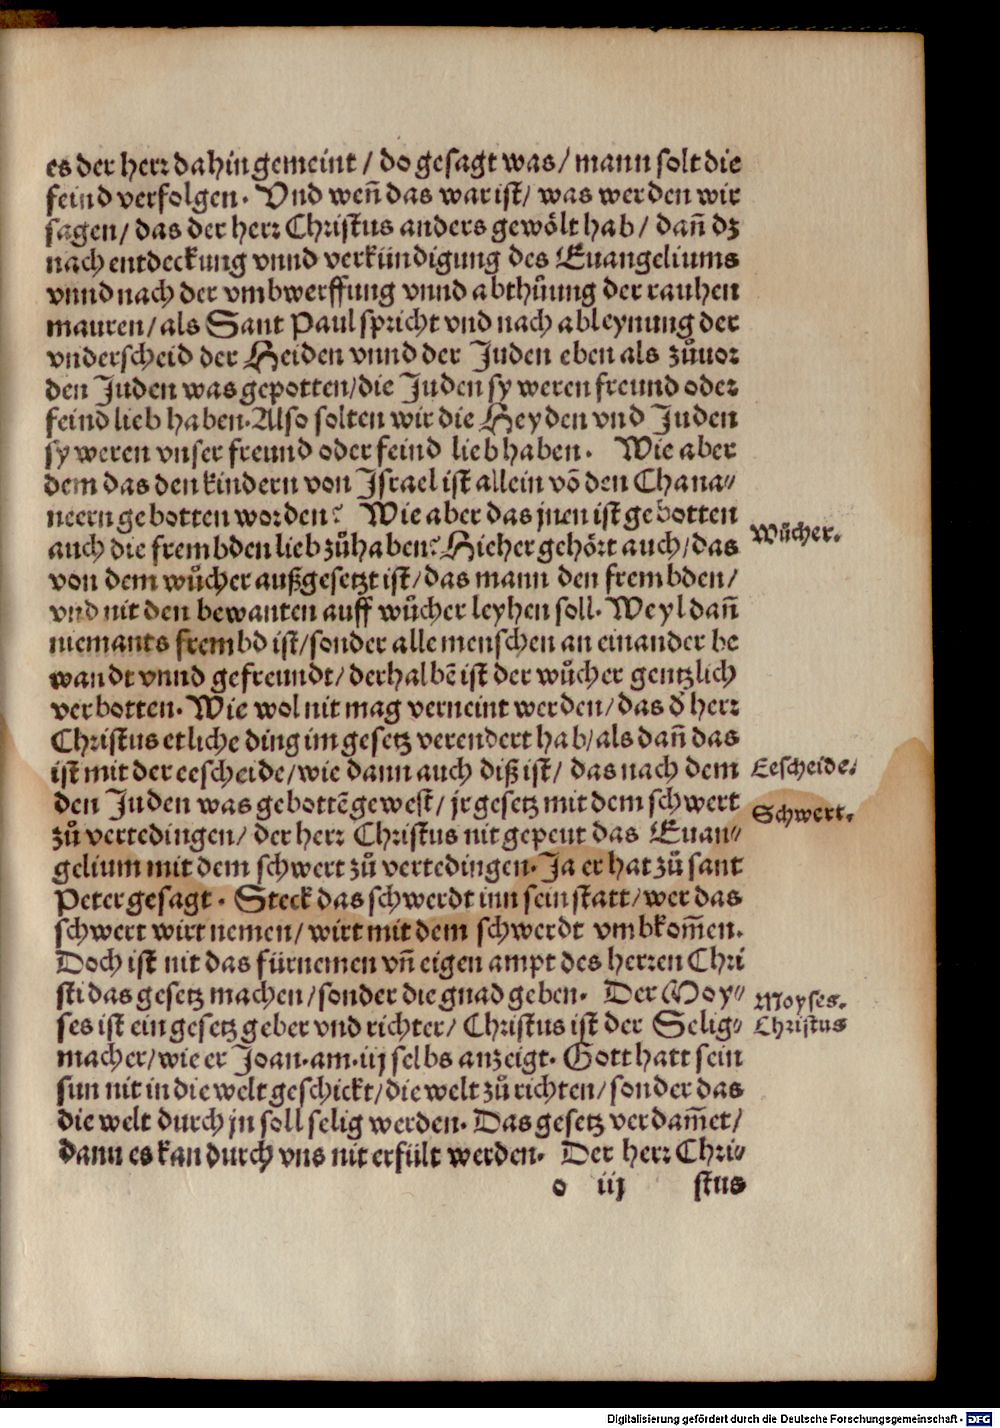 es der herr dahin gemeint / do gesagt was / mann solt die
feind verfolgen. Vnd weñ das war ist / was werden wir
sagen / das der herr Christus anders gewölt hab / dañ dz
nach entdeckung vnnd verkündigung des Euangeliums
vnnd nach der vmbwerffung vnnd abthůung der rauhen
mauren / als Sant Paul spricht vnd nach ableynung der
vnderscheid der Heiden vnnd der Juden eben als zůuor
den Juden was gepotten / die Juden sy weren freund oder
feind lieb haben. Also solten wir die Heyden vnd Juden
sy weren vnser freund oder feind lieb haben. Wie aber
dem das den kindern von Israel ist allein võ den Chana⸗
neern gebotten worden? Wie aber das jnen ist gebotten
auch die frembden lieb zůhaben? Hieher gehört auch / das
Wůcher.
von dem wůcher außgesetzt ist / das mann den frembden /
vnd nit den bewanten auff wůcher leyhen soll. Weyl dañ
niemants frembd ist / sonder alle menschen an einander be
wandt vnnd gefreundt / derhalbẽ ist der wůcher gentzlich
verbotten. Wie wol nit mag verneint werden / das d̕ herr
Christus etliche ding im gesetz verendert hab / als dañ das
ist mit der eescheide / wie dann auch diß ist / das nach dem
Eescheide.
den Juden was gebottẽ gewest / jr gesetz mit dem schwert
Schwert.
zů vertedingen / der herr Christus nit gepeut das Euan⸗
gelium mit dem schwert zů vertedingen. Ja er hat zů sant
Peter gesagt. Steck das schwerdt inn sein statt / wer das
schwert wirt nemen / wirt mit dem schwerdt vmbkom̃en.
Doch ist nit das fürnemen vñ eigen ampt des herren Chri
sti das gesetz machen / sonder die gnad geben. Der Moy⸗
Moyses.
ses ist ein gesetz geber vnd richter / Christus ist der Selig⸗
Christus
macher / wie er Joan. am. iij selbs anzeigt. Gott hatt sein
sun nit in die welt geschickt / die welt zů richten / sonder das
die welt durch jn soll selig werden. Das gesetz verdam̃et /
dann es kan durch vns nit erfült werden. Der herr Chri⸗
o iij stus
Digitalisierung gefördert durch die Deutsche Forschungsgemeinschaft - DFG